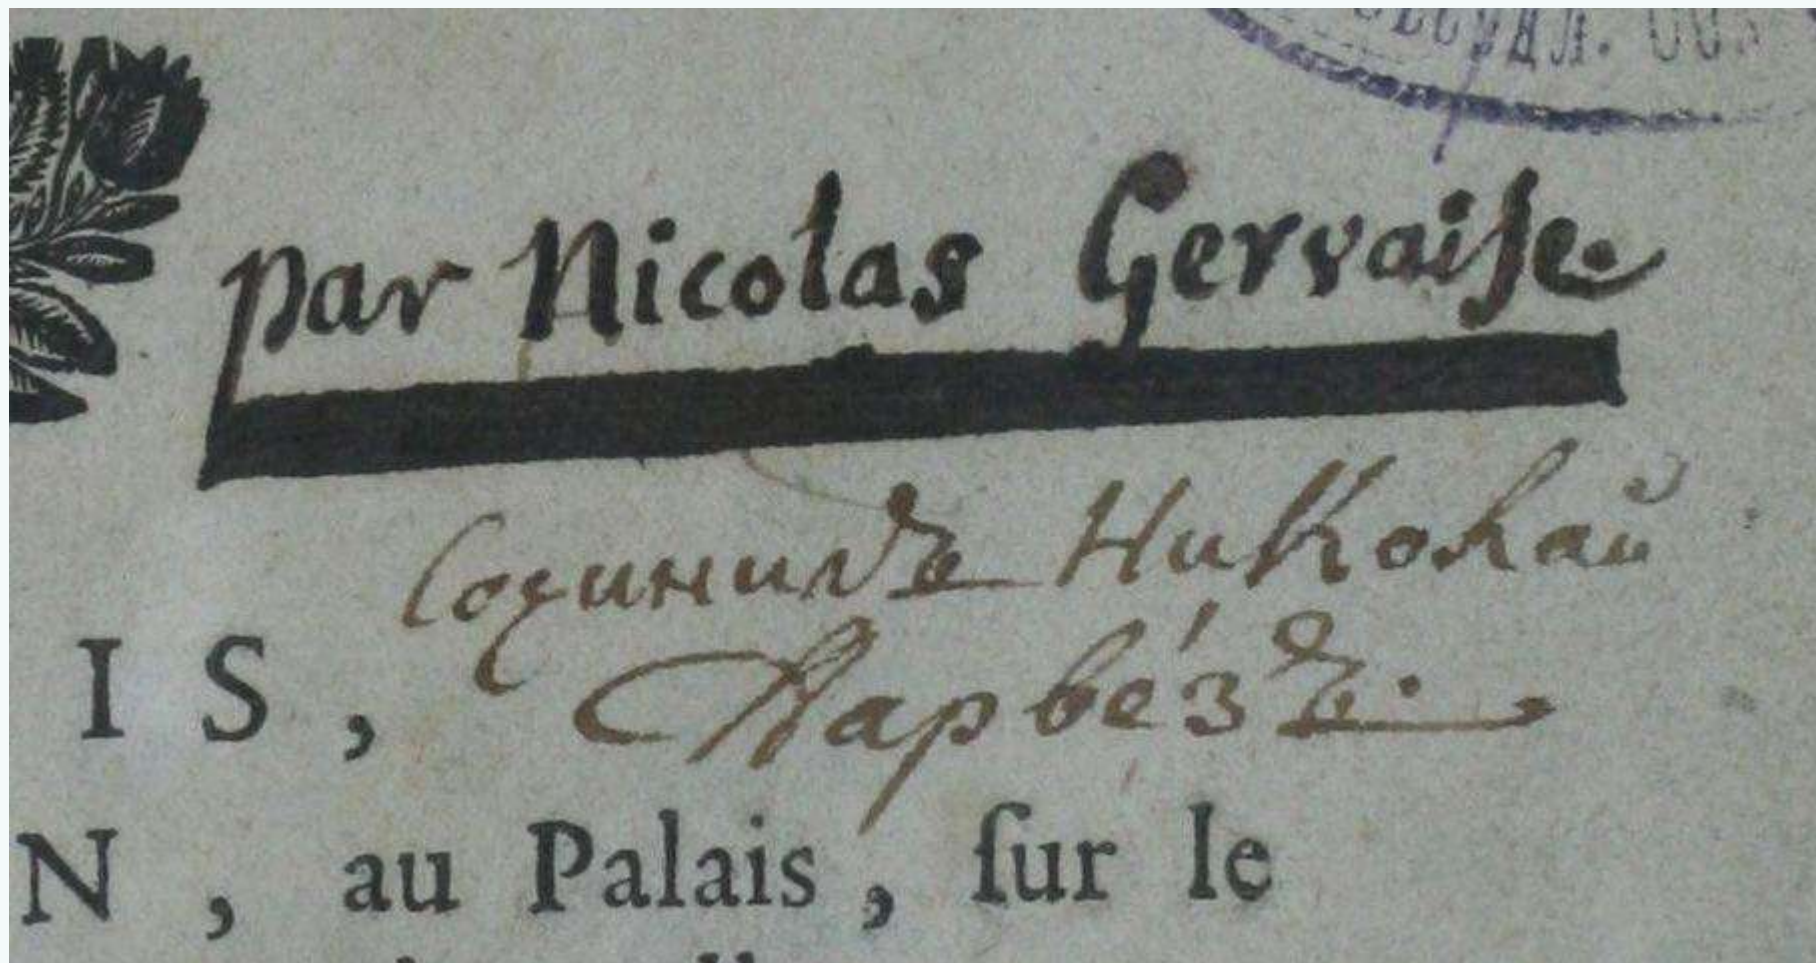 par Nicolas Gervaiſe.
Сочинилъ Николай
Жарвéзъ.
I S ,
N , au Palais , ſur le